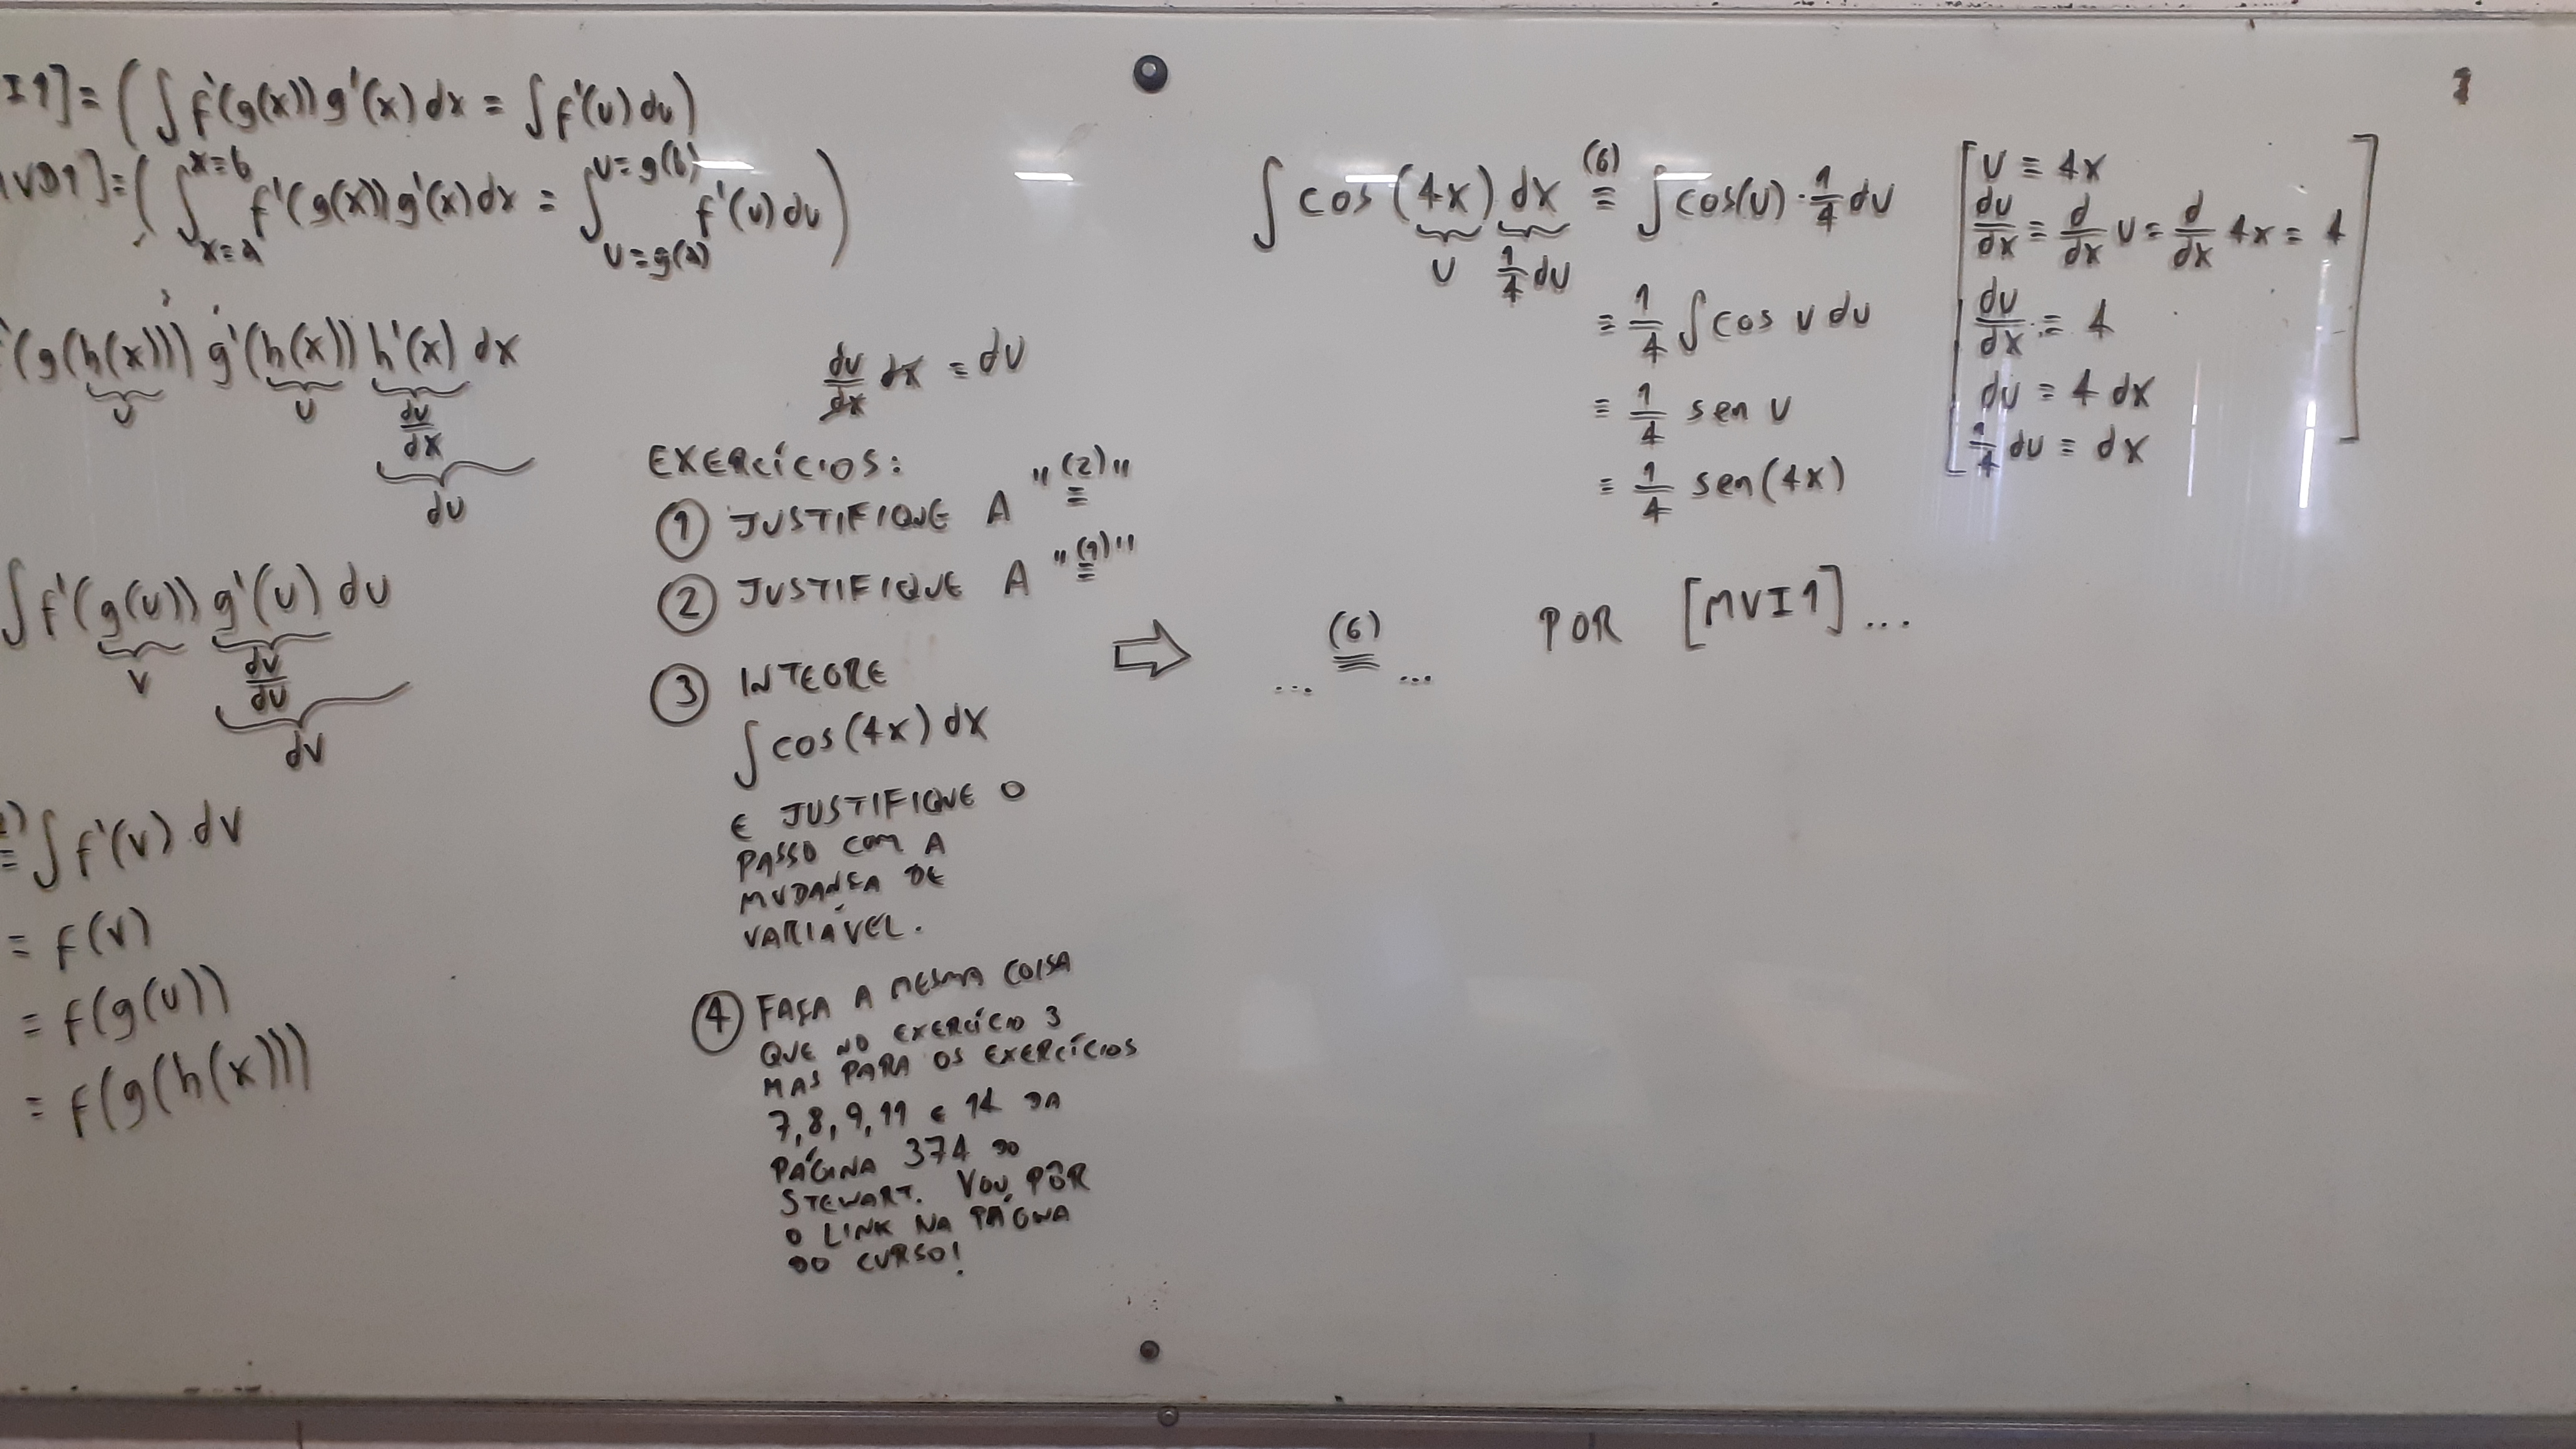 I1] = (∫f'(g(x))g'(x)dx = ∫f'(u)du)
VD1] = (∫_{x=a}^{x=b} f'(g(x))g'(x)dx = ∫_{u=g(a)}^{u=g(b)} f'(u)du)
'(g(h(x))) g'(h(x)) h'(x) dx
u u du/dx
du
∫f'(g(u)) g'(u) du
v dv/du
dv
= ∫f'(v) dv
= f(v)
= f(g(u))
= f(g(h(x)))
du/dx dx = du
EXERCÍCIOS:
① JUSTIFIQUE A "(2)="
② JUSTIFIQUE A "(1)="
③ INTEGRE
∫cos(4x)dx
E JUSTIFIQUE O
PASSO COM A
MUDANÇA DE
VARIÁVEL.
④ FAÇA A MESMA COISA
QUE NO EXERCÍCIO 3
MAS PARA OS EXERCÍCIOS
7, 8, 9, 11 E 14 DA
PÁGINA 374 DO
STEWART. VOU PÔR
O LINK NA PÁGINA
DO CURSO!
∫cos(4x) dx (6)= ∫cos(u)·1/4 du
u 1/4 du
= 1/4 ∫cos u du
= 1/4 sen u
= 1/4 sen(4x)
[u = 4x
du/dx = d/dx u = d/dx 4x = 4
du/dx = 4
du = 4 dx
1/4 du = dx]
⇨ ... (6)= ... POR [MVI1]...